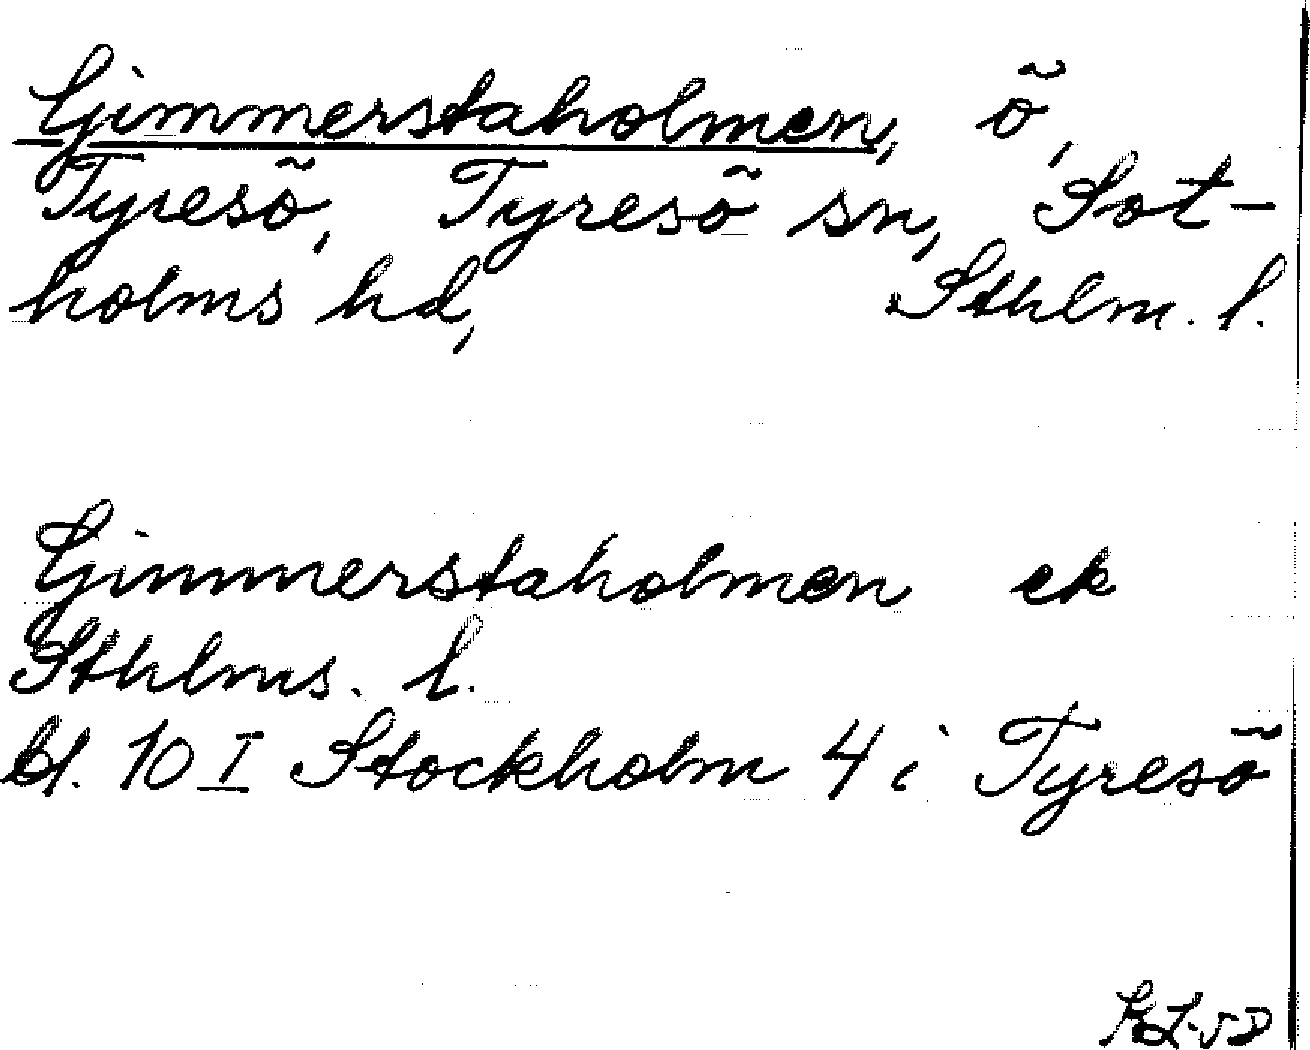 Gimmerstaholmen, ö,
Tyresö, Tyresö sn, Sot-
holms hd, Sthlm. l.
Gimmerstaholmen ek
Sthlms. l.
bl. 10 I Stockholm 4 i Tyresö